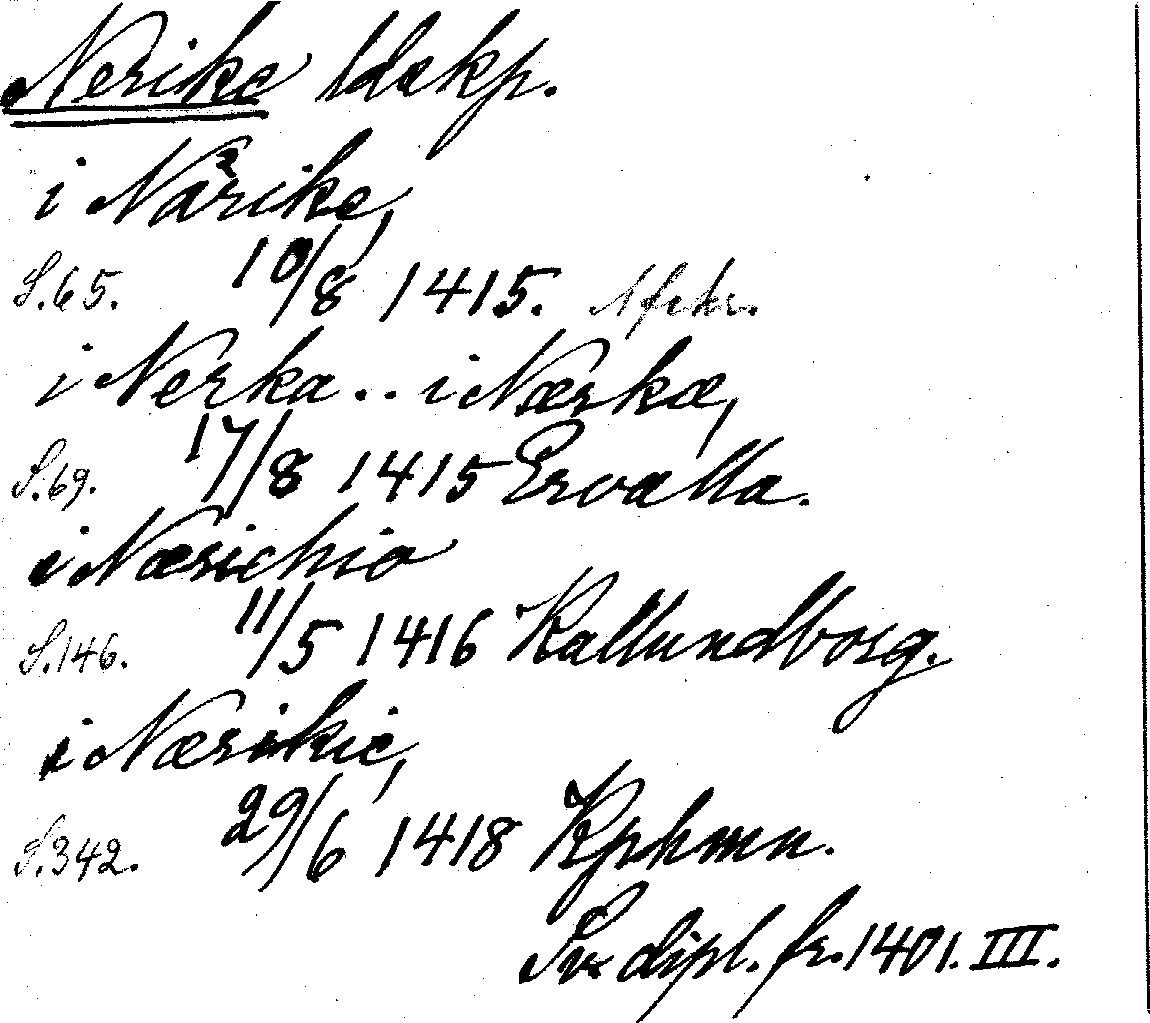 Nerike ldskp.
i Närike,
S.65. 10/8 1415. Afskr.
i Nerka .. i Nærkæ,
S.69. 17/8 1415 Ervalla.
i Næsichio
S.146. 11/5 1416 Kallundborg.
i Nærikie,
S.342. 29/6 1418 Kphmn.
Sv dipl. fr. 1401. III.